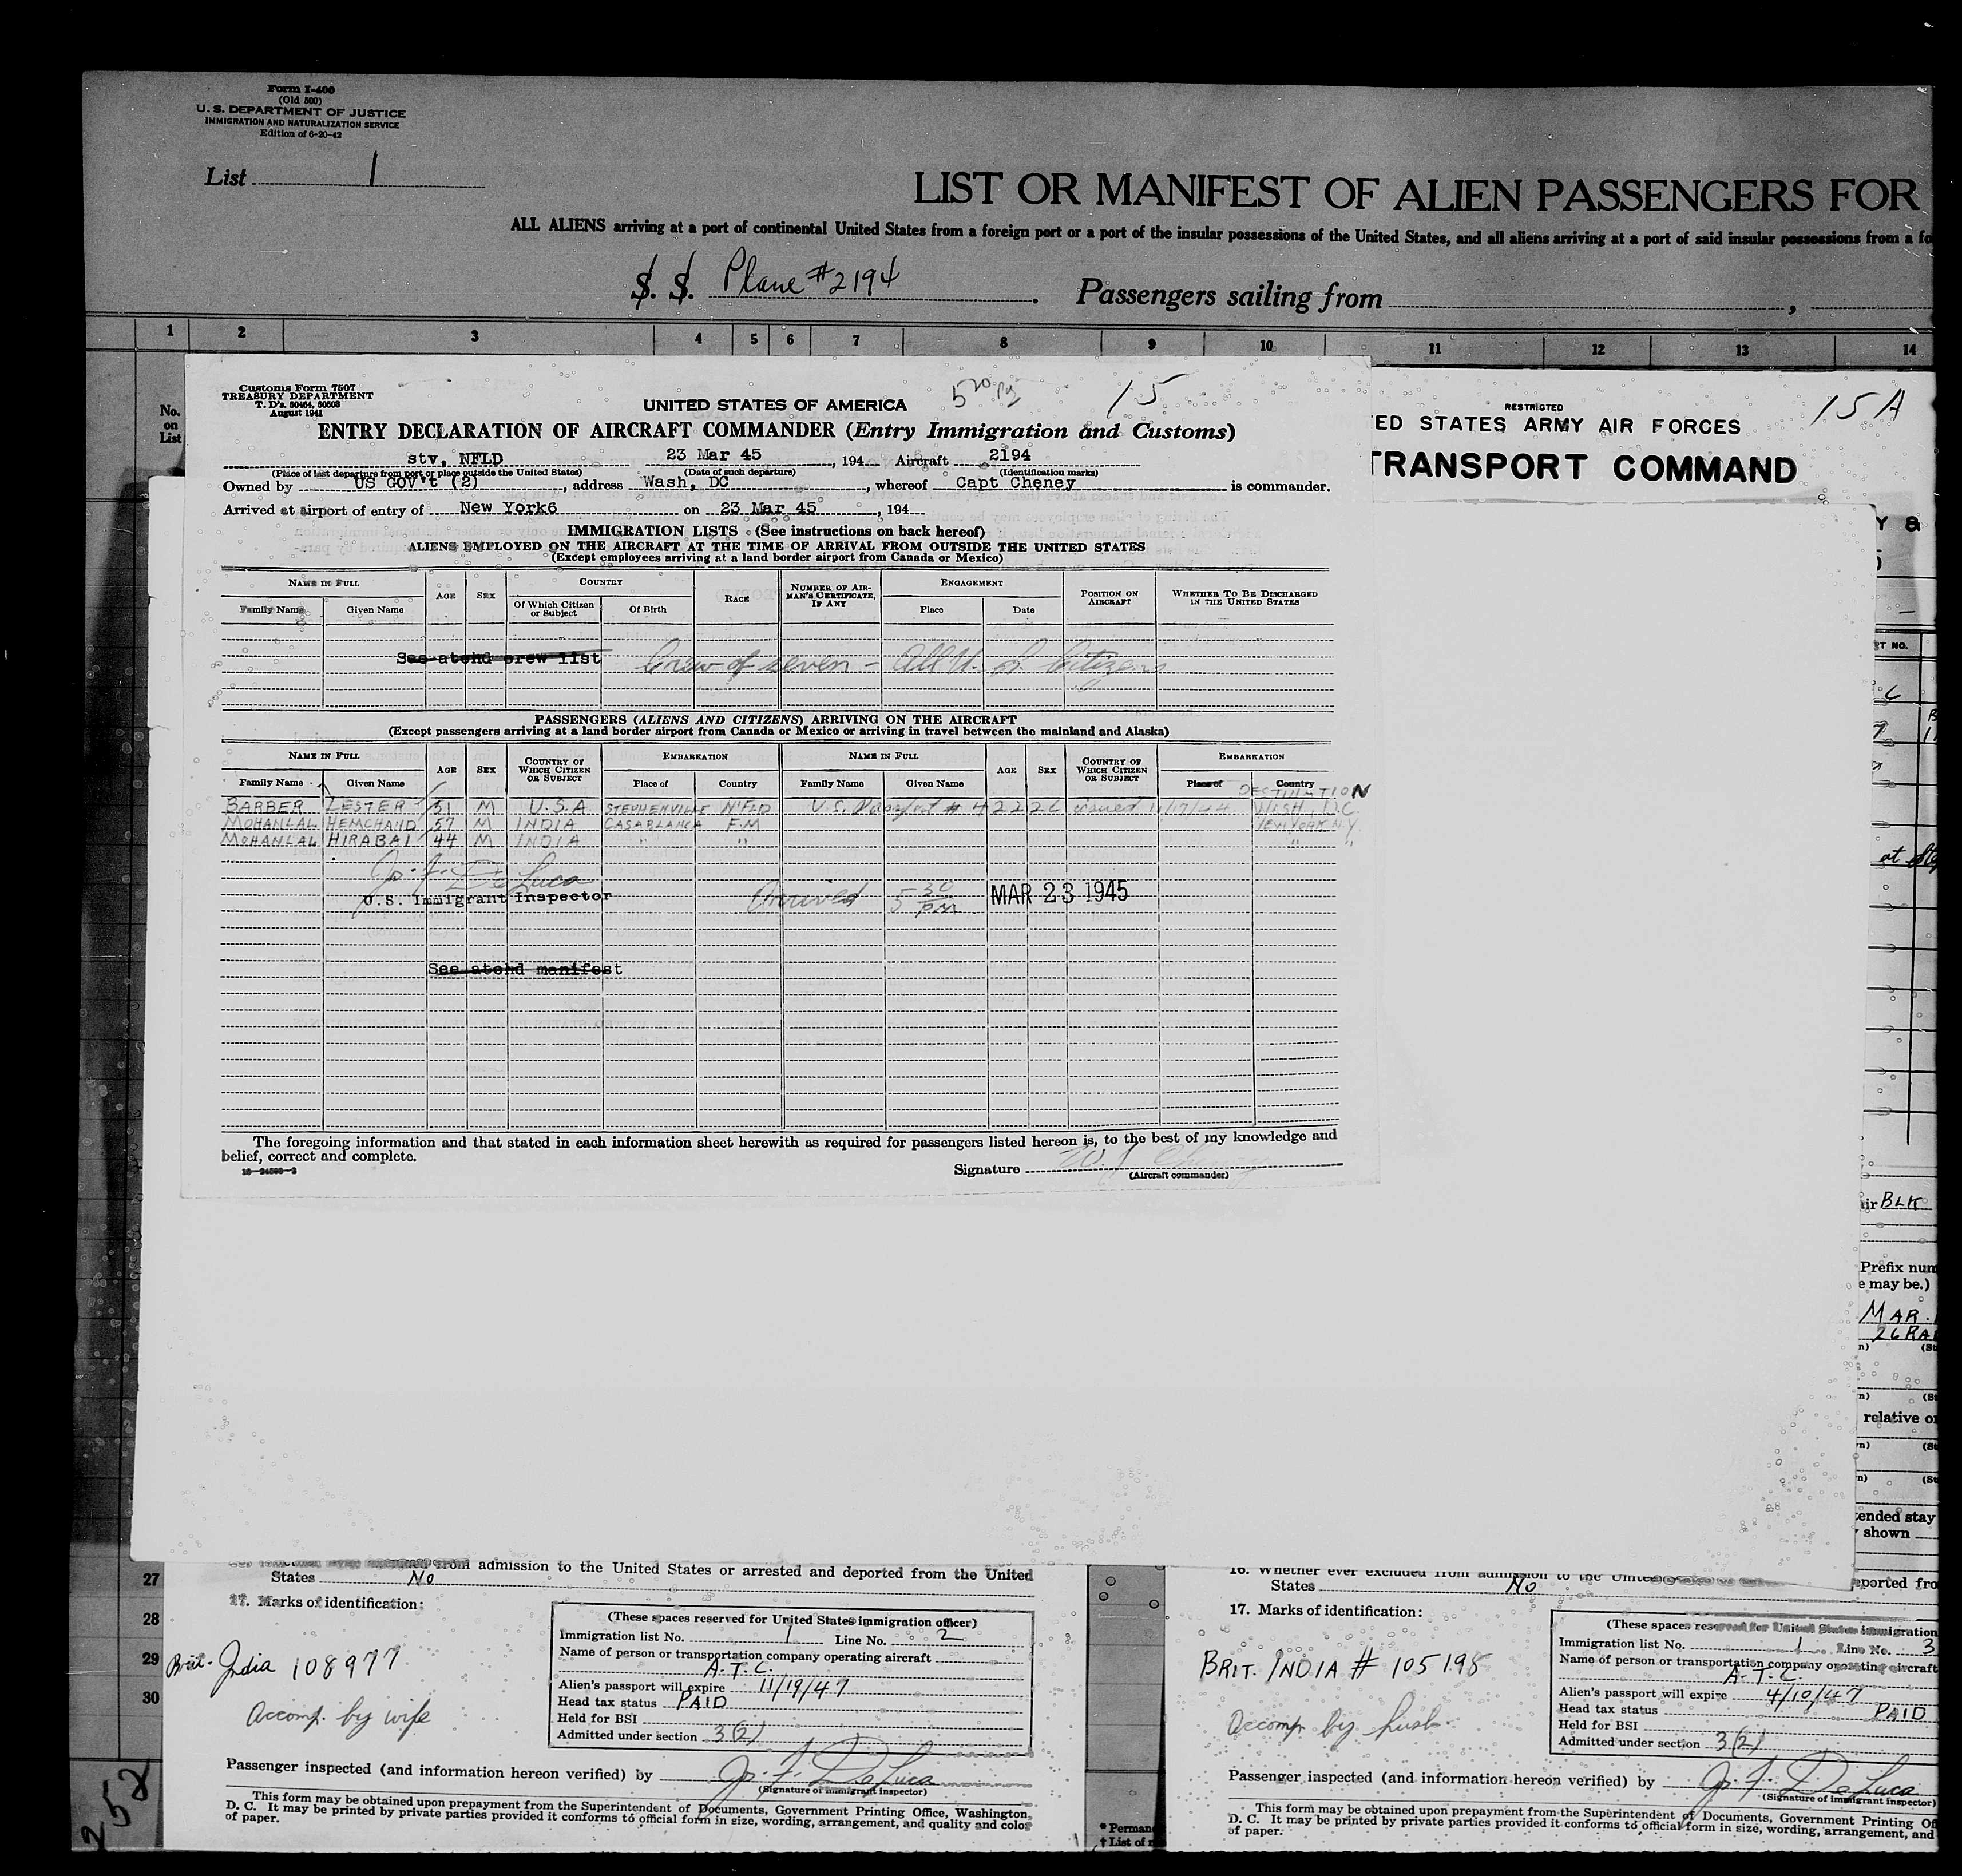 Form I-400
(Old 500)
U. S. DEPARTMENT OF JUSTICE
IMMIGRATION AND NATURALIZATION SERVICE
Edition of 6-20-42
List 1
LIST OR MANIFEST OF ALIEN PASSENGERS FOR
ALL ALIENS arriving at a port of continental United States from a foreign port or a port of the insular possessions of the United States, and all aliens arriving at a port of said insular possessions from a fo
S. S. Plane #2194. Passengers sailing from ,
1 2 3 4 5 6 7 8 9 10 11 12 13 14
No. on List
Customs Form 7507
TREASURY DEPARTMENT
T. D's. 50464, 50503
August 1941
15
UNITED STATES OF AMERICA
ENTRY DECLARATION OF AIRCRAFT COMMANDER (Entry Immigration and Customs)
stv, NFLD 23 Mar 45, 194 Aircraft 2194
(Place of last departure from port or place outside the United States) (Date of such departure) (Identification marks)
Owned by US GOV't (2), address Wash, DC, whereof Capt Cheney is commander.
Arrived at airport of entry of New York6 on 23 Mar 45, 194
IMMIGRATION LISTS (See instructions on back hereof)
ALIENS EMPLOYED ON THE AIRCRAFT AT THE TIME OF ARRIVAL FROM OUTSIDE THE UNITED STATES
(Except employees arriving at a land border airport from Canada or Mexico)
NAME IN FULL AGE SEX COUNTRY RACE NUMBER OF AIRMAN'S CERTIFICATE, IF ANY ENGAGEMENT POSITION ON AIRCRAFT WHETHER TO BE DISCHARGED IN THE UNITED STATES
Family Name Given Name Of Which Citizen or Subject Of Birth Place Date
See atchd crew list Crew of seven - All U. S. Citizens
PASSENGERS (ALIENS AND CITIZENS) ARRIVING ON THE AIRCRAFT
(Except passengers arriving at a land border airport from Canada or Mexico or arriving in travel between the mainland and Alaska)
NAME IN FULL AGE SEX COUNTRY OF WHICH CITIZEN OR SUBJECT EMBARKATION NAME IN FULL AGE SEX COUNTRY OF WHICH CITIZEN OR SUBJECT EMBARKATION
Family Name Given Name Place of Country Family Name Given Name Place of Country
DESTINATION
BARBER LESTER 51 M U.S.A STEPHENVILLE N'FLD U.S. Passport # 42226 issued 11/17/44 WASH. D.C.
MOHANLAL HEMCHAND 57 M INDIA CASABLANCA F.M NEW YORK N.Y.
MOHANLAL HIRABAI 44 M INDIA " " " "
Jo. F. De Luca
U.S. Immigrant Inspector Arrived 5 30 PM MAR 23 1945
See atchd manifest
The foregoing information and that stated in each information sheet herewith as required for passengers listed hereon is, to the best of my knowledge and
belief, correct and complete.
Signature
(Aircraft commander)
RESTRICTED
15A
ED STATES ARMY AIR FORCES
TRANSPORT COMMAND
Y &
T NO.
air BLK
Prefix num
e may be.)
MAR.
relative o
tended stay
shown
from admission to the United States or arrested and deported from the United
States No
27
28
29
30
17. Marks of identification:
Brit. India 108977
Accomp. by wife
(These spaces reserved for United States immigration officer)
Immigration list No. 1 Line No. 2
Name of person or transportation company operating aircraft
A.T.C.
Alien's passport will expire 11/19/47
Head tax status PAID
Held for BSI
Admitted under section 3(2)
Passenger inspected (and information hereon verified) by Jo. F. De Luca
(Signature of immigrant inspector)
This form may be obtained upon prepayment from the Superintendent of Documents, Government Printing Office, Washington,
D. C. It may be printed by private parties provided it conforms to official form in size, wording, arrangement, and quality and color
of paper.
252
* Perman
† List of r
16. Whether ever excluded from admission to the United eported fro
States No
17. Marks of identification:
BRIT. INDIA # 105198
Accomp. by husb.
(These spaces reserved for United States immigration
Immigration list No. 1 Line No. 3
Name of person or transportation company operating aircraft
A.T.C.
Alien's passport will expire 4/10/47
Head tax status PAID
Held for BSI
Admitted under section 3(2)
Passenger inspected (and information hereon verified) by Jo. F. De Luca
(Signature of immigrant inspector)
This form may be obtained upon prepayment from the Superintendent of Documents, Government Printing Of
D. C. It may be printed by private parties provided it conforms to official form in size, wording, arrangement, and
of paper.